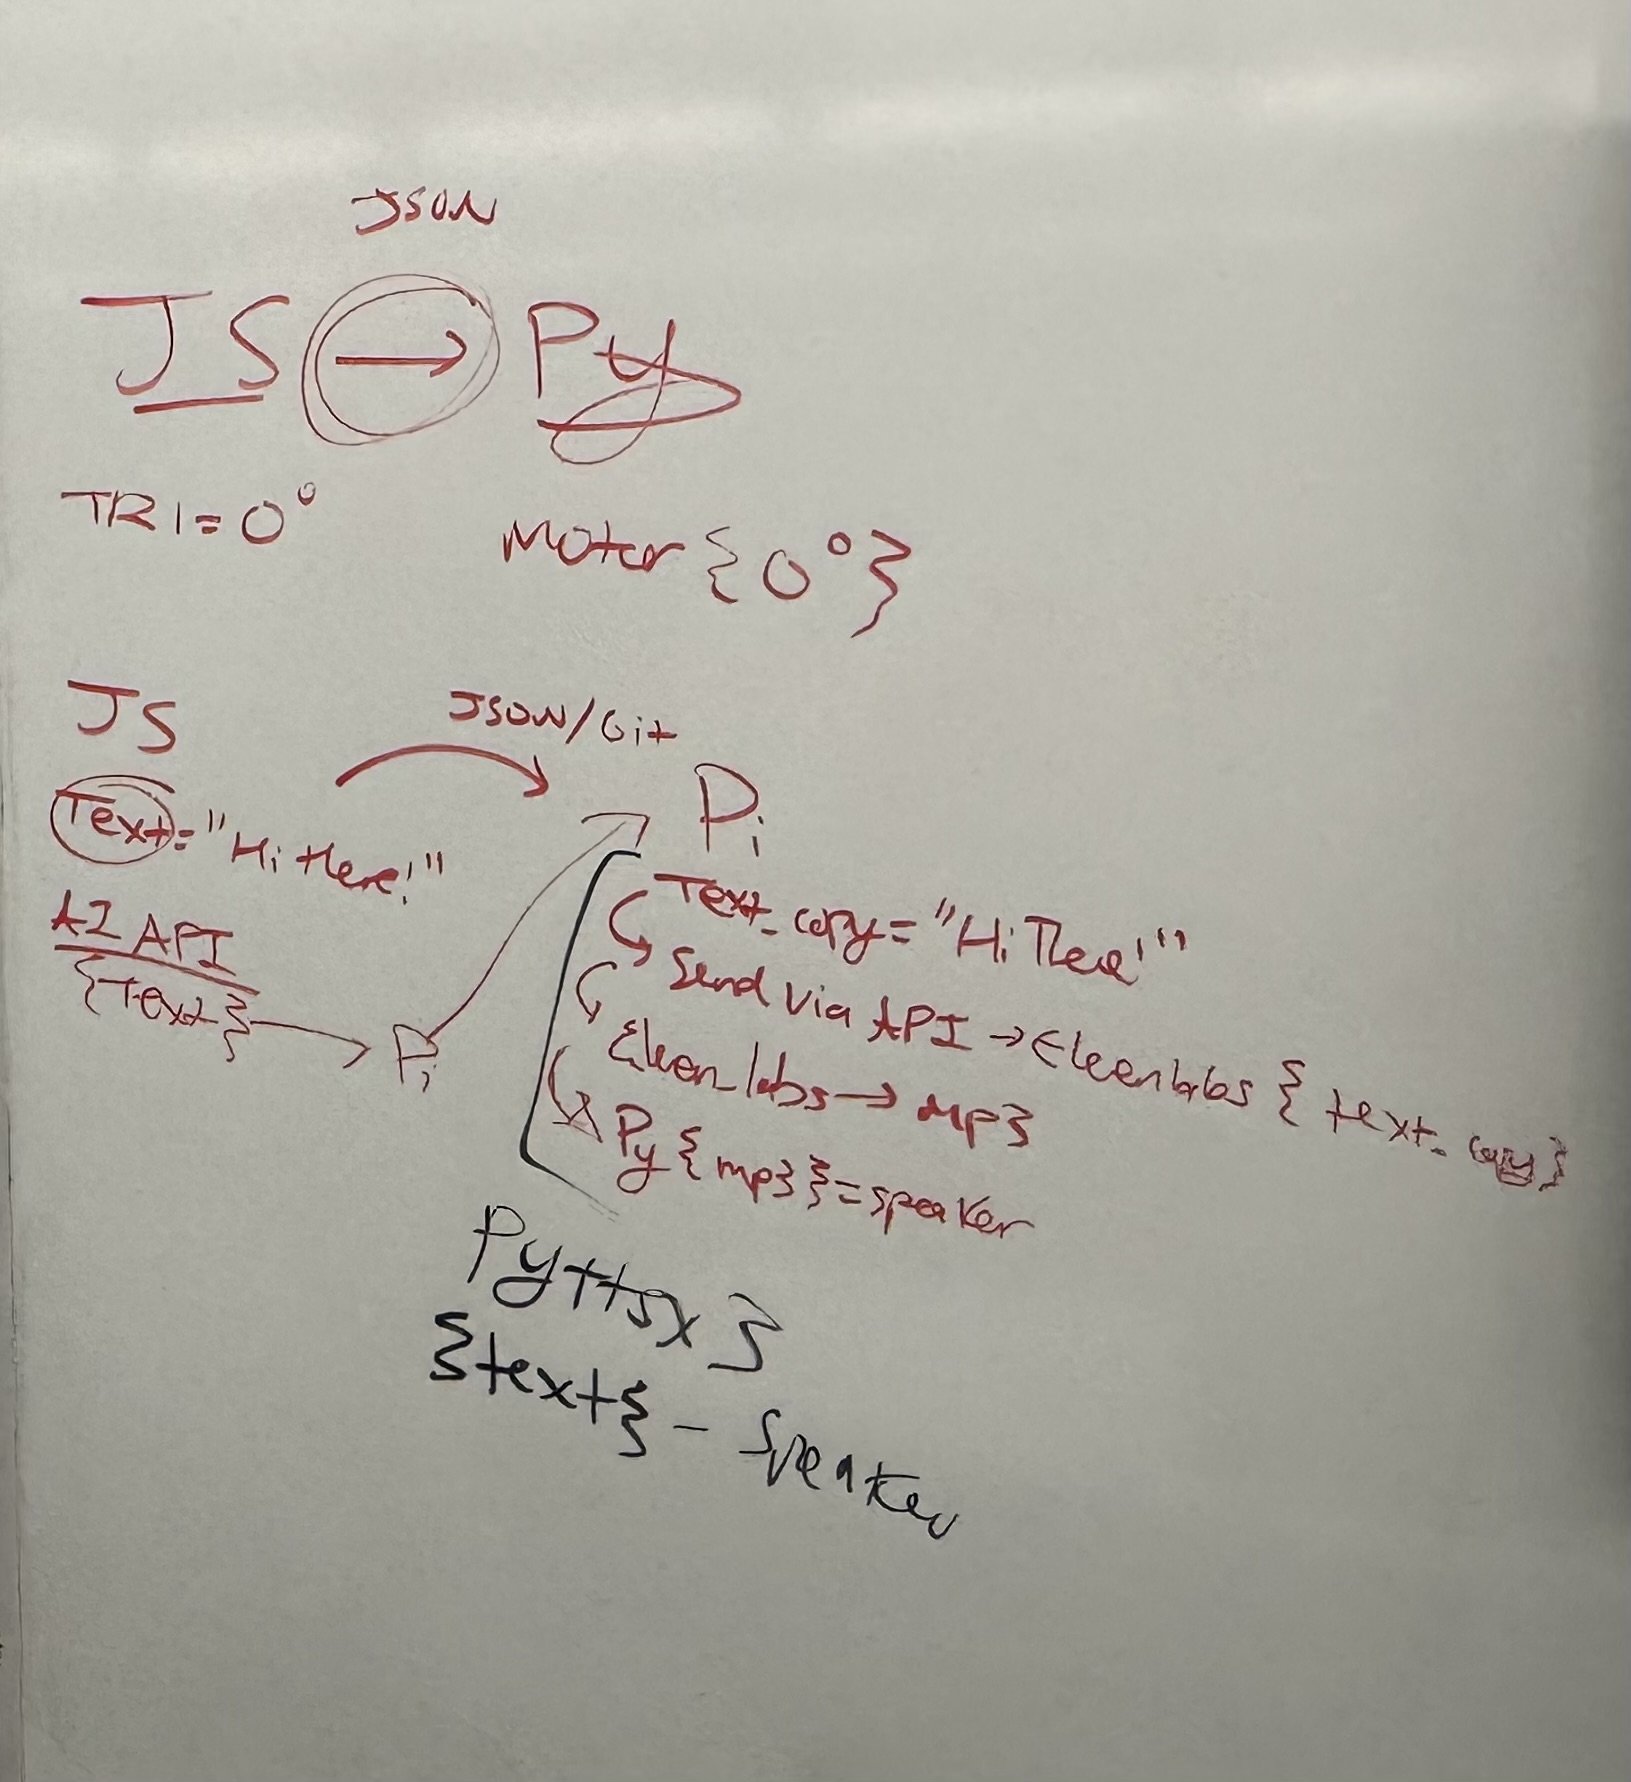 JSON
JS → Py
TR1=0°
Motor {0°}
JS
JSON/Git
Text="Hi there!"
Pi
AI API
{Text} → Pi
Text_copy="Hi There!"
Send via API → Elevenlabs { text_copy}
Eleven_labs → mp3
Py{mp3}=speaker
Pyttsx3
{text} - Speaker